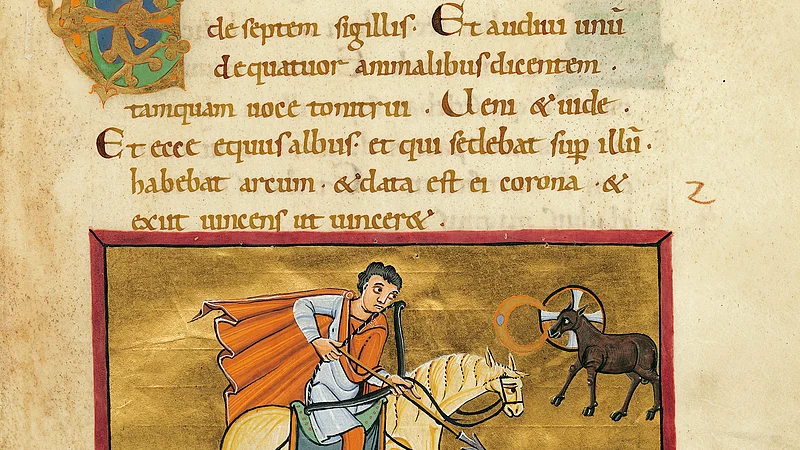 de septem sigillis. Et audiui unū
de quatuor animalibus dicentem.
tamquam uoce tonitrui. Ueni & uide.
Et ecce equus albus. et qui sedebat sup illū.
habebat arcum. & data est ei corona. &
exiit uincens ut uincer&.
2